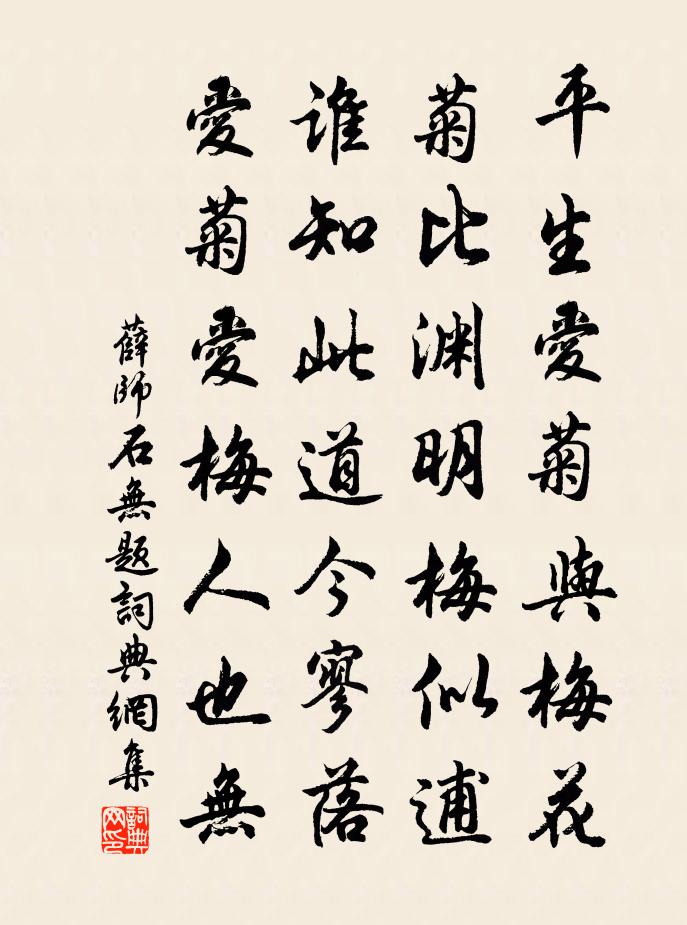 平生愛菊與梅花
菊比渊明梅似逋
誰知此道今寥落
愛菊愛梅人也無
薛師石無題詞典網集
詞典網印